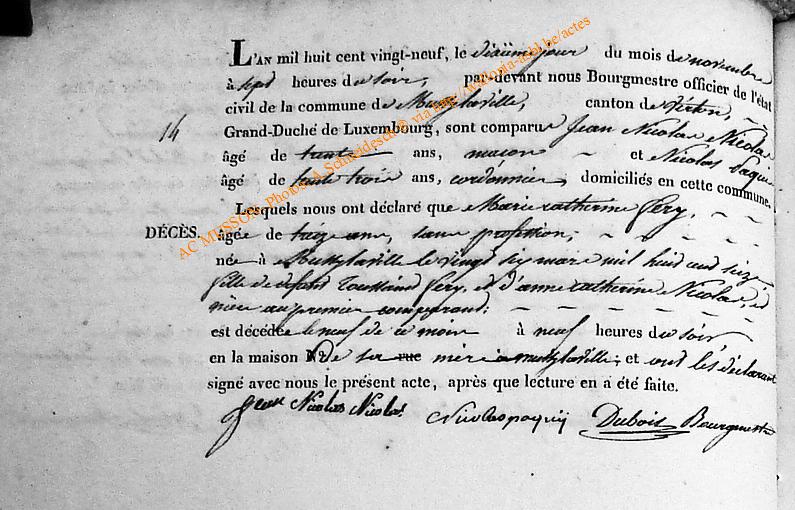 L'AN mil huit cent vingt-neuf, le dixième jour du mois de novembre
à sept heures du soir, par-devant nous Bourgmestre officier de l'état
civil de la commune de Mussylaville, canton de Virton,
14
Grand-Duché de Luxembourg, sont comparus Jean Nicolas Nicolas
âgé de trente ans, maçon et Nicolas Paquis
âgé de trente trois ans, cordonnier, domiciliés en cette commune.
Lesquels nous ont déclaré que Marie catherine Gery,
DÉCÈS.
âgée de treize ans, sans profession,
née à Mussylaville le vingt six mars mil huit cent seize
fille de defunt Toussaint Gery, et d'anne catherine Nicolas, et
nièce au premier comparant;
est décédée le neuf de ce mois à neuf heures du soir,
en la maison de sa mère à mussylaville; et ont les déclarant
signé avec nous le présent acte, après que lecture en a été faite.
Jean Nicolas Nicolas Nicolas paquis Dubois Bourgmestre
AC MUSSON- Photos A.Schneidesch© via http://wallonia-asbl.be/actes